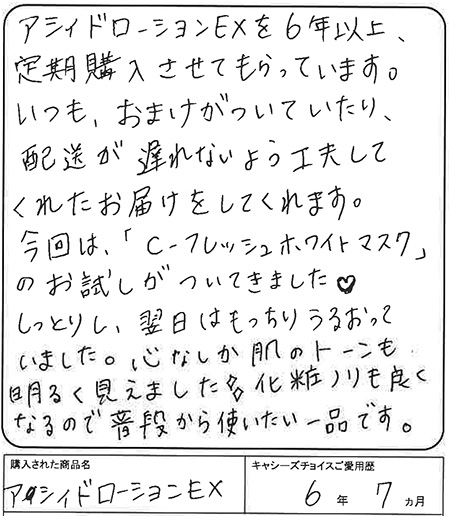 アシィドローションEXを6年以上、
定期購入させてもらっています。
いつも、おまけがついていたり、
配送が遅れないよう工夫して
くれたお届けをしてくれます。
今回は、「C-フレッシュホワイトマスク」
のお試しがついてきました♥
しっとりし、翌日はもっちりうるおって
いました。心なしか肌のトーンも
明るく見えました 化粧ノリも良く
なるので普段から使いたい一品です。
購入された商品名
キャシーズチョイスご愛用歴
アシィドローションEX
6年 7ヵ月